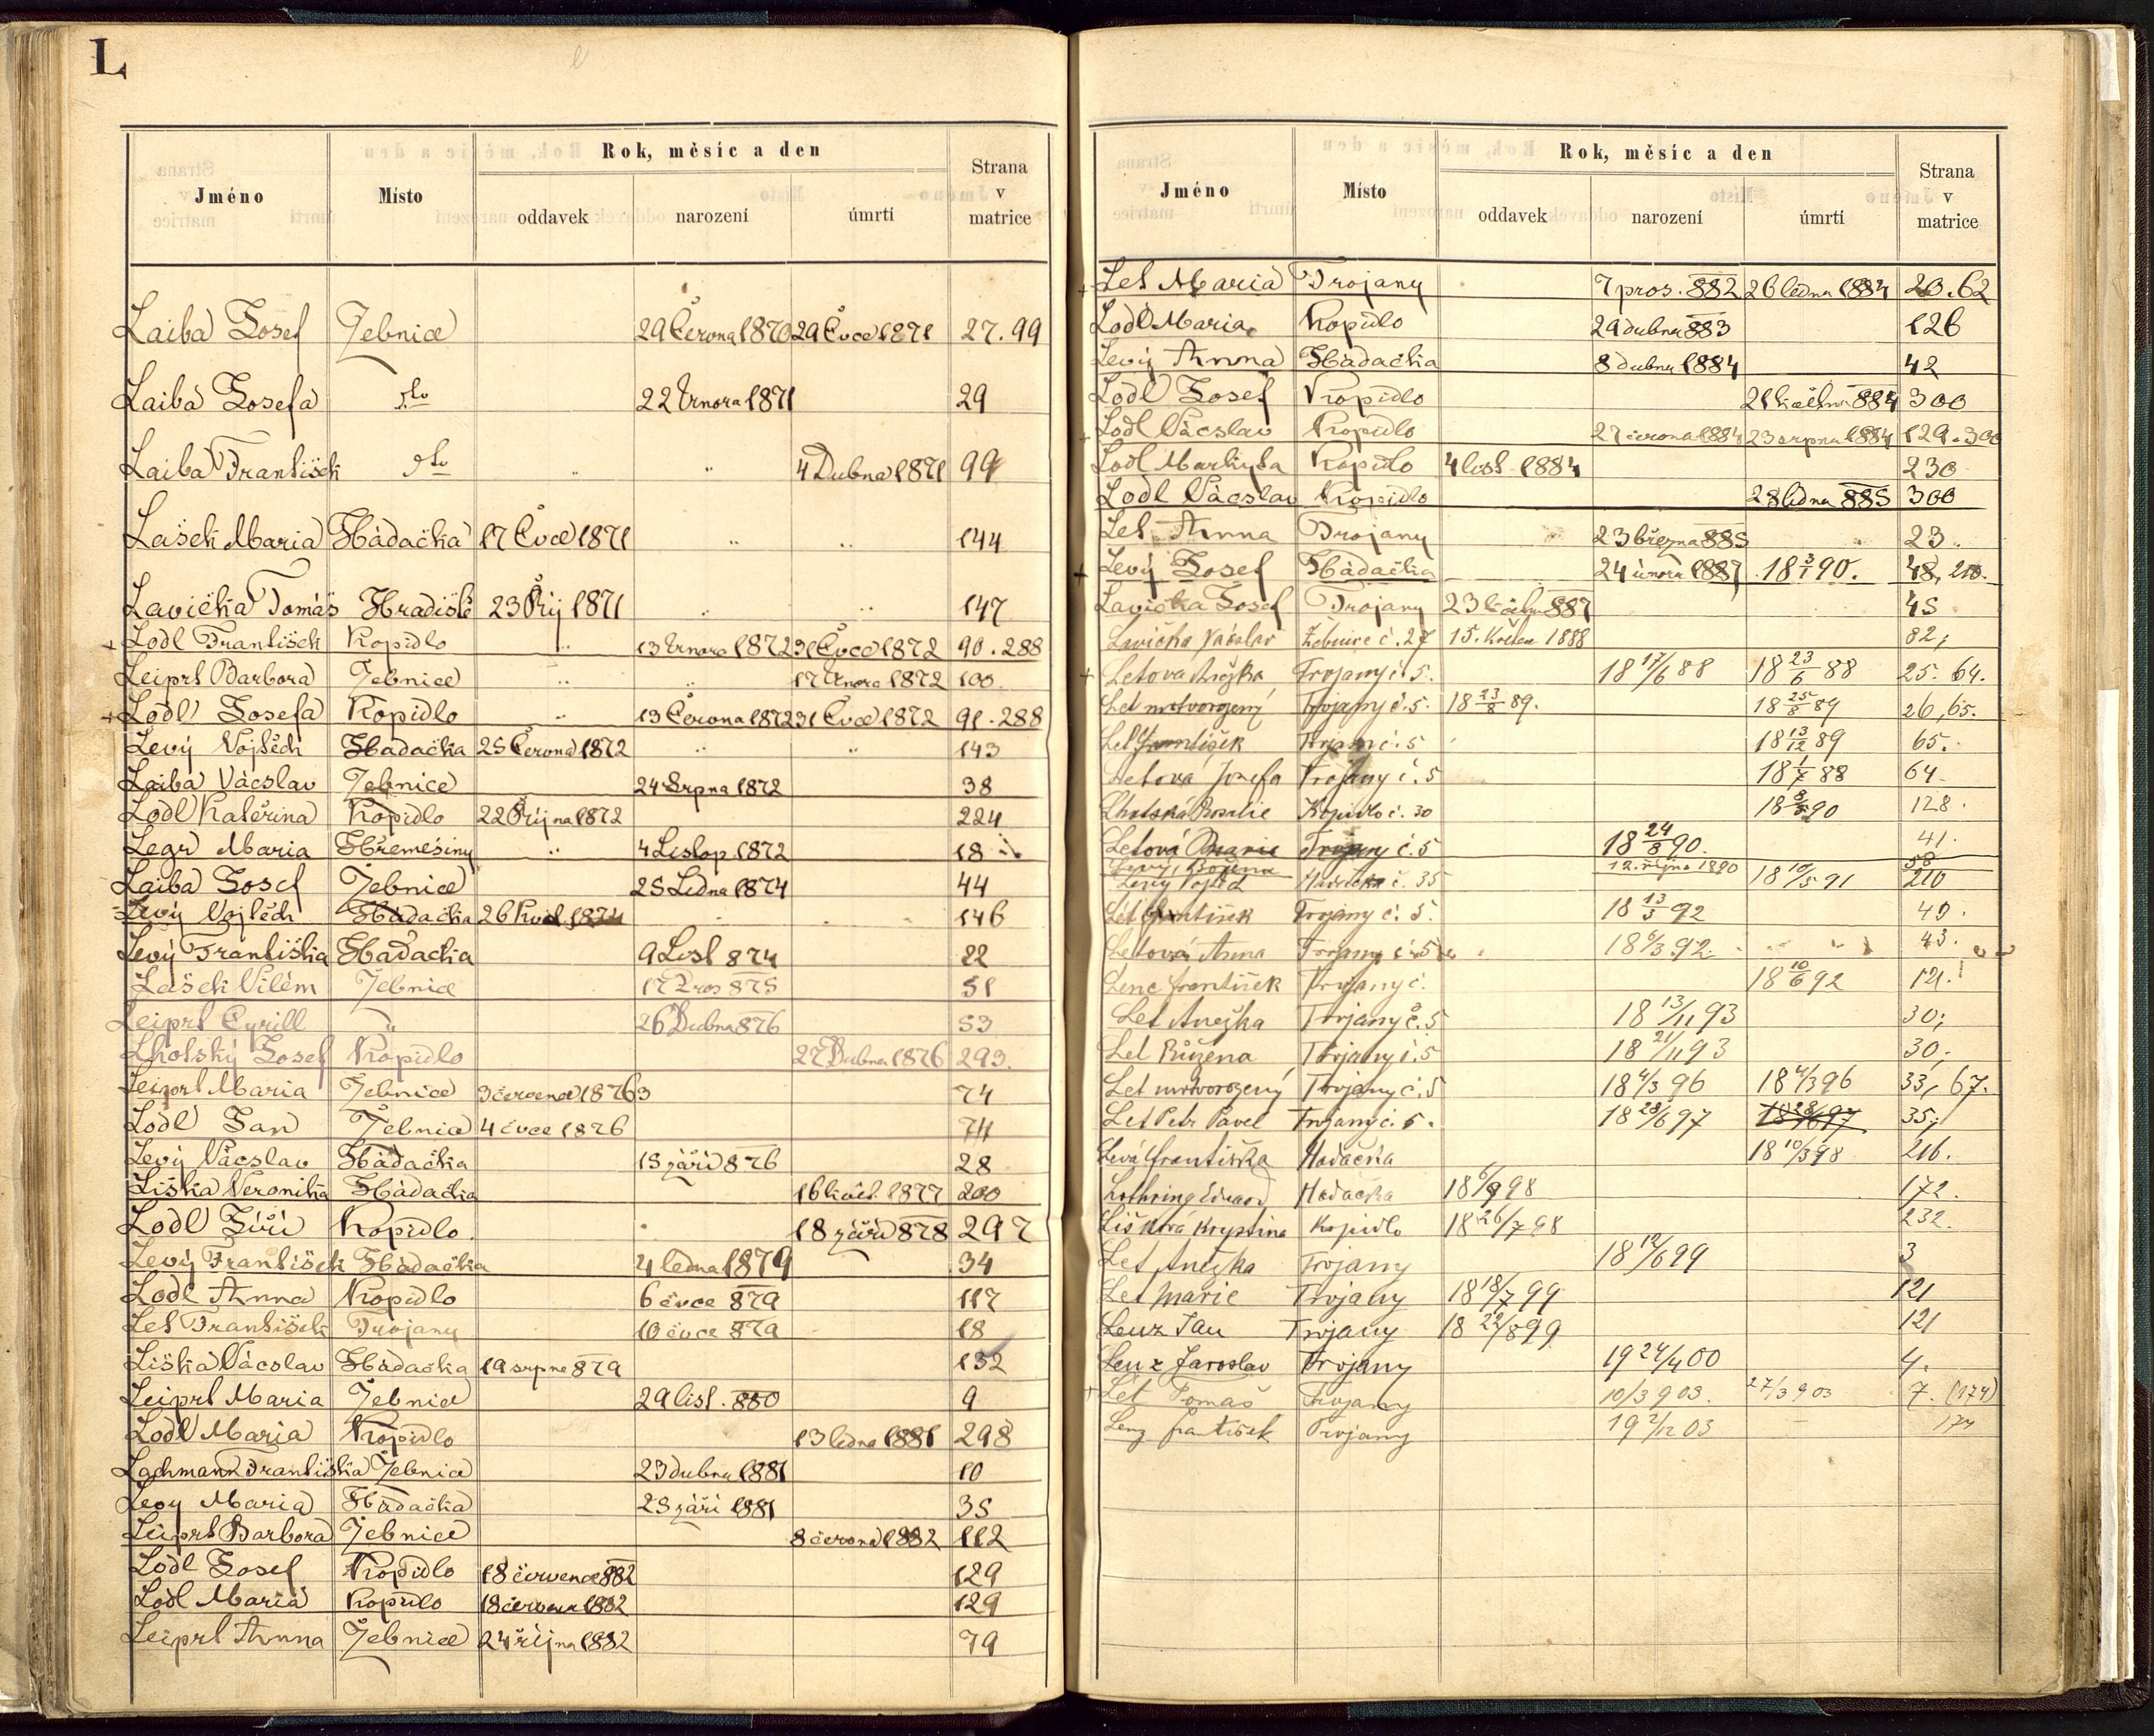 L
Jméno Místo Rok, měsíc a den Strana v matrice
oddavek narození úmrtí
Laiba Josef Žebnice 29 Června 1870 29 Čvce 1871 27.99
Laiba Josefa dto 22 Února 1871 29
Laiba František dto " " 4 Dubna 1871 99
Lašek Maria Hadačka 17 Čvce 1871 " " 144
Lavička Tomáš Hradiště 23 Říj 1871 " " 147
+ Lodl František Kopidlo " 13 Února 1872 31 Čvce 1872 90.288
Leiprt Barbora Žebnice " " 17 Února 1872 100
+ Lodl Josefa Kopidlo " 13 Června 1872 31 Čvce 1872 91.288
Levý Vojtěch Hadačka 25 Června 1872 " " 143
Laiba Václav Žebnice 24 Srpna 1872 38
Lodl Kateřina Kopidlo 22 Října 1872 224
Legr Maria Křemešiny " 4 Listop 1872 18
Laiba Josef Žebnice 25 Ledna 1874 44
Levý Vojtěch Hadačka 26 Květ. 1874 146
Levý Františka Hadačka 9 List 874 22
Lašek Vilém Žebnice 17 Pros 875 51
Leiprt Cyrill " 26 Dubna 876 53
Lhotský Josef Kopidlo 27 Dubna 1876 293.
Leiprt Maria Žebnice 3 července 1876 74
Lodl Jan Žebnice 4 čvce 1876 74
Levý Václav Hadačka 15 září 876 28
Liška Veronika Hadačka 16 květ. 1877 200
Lodl Jiří Kopidlo 18 září 878 297
Levý František Hadačka 4 ledna 1879 34
Lodl Anna Kopidlo 6 čvce 879 117
Let František Trojany 10 čvce 879 18
Liška Václav Hadačka 19 srpna 879 132
Leiprt Maria Žebnice 29 list. 880 9
Lodl Maria Kopidlo 13 ledna 1881 298
Lachmann Františka Žebnice 23 dubna 1881 10
Levý Maria Hadačka 25 září 1881 35
Leiprt Barbora Žebnice 8 června 1882 112
Lodl Josef Kopidlo 18 července 882 129
Lodl Maria Kopidlo 18 července 1882 129
Leiprt Anna Žebnice 24 října 1882 79
Jméno Místo Rok, měsíc a den Strana v matrice
oddavek narození úmrtí
+ Let Maria Trojany 7 pros. 882 26 ledna 1884 20.62
Lodl Maria Kopidlo 29 dubna 883 126
Levý Anna Hadačka 8 dubna 1884 42
Lodl Josef Kopidlo 21 května 884 300
+ Lodl Václav Kopidlo 27 června 1884 23 srpna 1884 129.300
Lodl Markyta Kopidlo 4 list. 1884 230
Lodl Václav Kopidlo 28 ledna 885 300
Let Anna Trojany 23 března 885 23.
+ Levý Josef Hadačka 24 února 1887 18 3/1 90. 48, 210.
Lavička Josef Trojany 23 května 887 45
Lavička Václav Žebnice č. 27 15. Květen 1888 82,
+ Letova Anežka Trojany č. 5. 18 17/6 88 18 23/6 88 25. 64.
Let mrtvorozený Trojany č. 5. 18 23/8 89. 18 25/8 89 26, 65.
Let František Trojany č. 5 18 13/12 89 65.
Letová Josefa Trojany č. 5 18 1/7 88 64
Lhotská Rosalie Kopidlo č. 30 18 8/5 90 128.
Letová Marie Trojany č. 5 18 24/8 90. 41.
Levý, Božena 12. října 1890 58
Levý Vojtěch Hadačka č. 35 18 10/5 91 210
Let František Trojany č. 5. 18 13/3 92 49.
Letová Anna Trojany č. 5 18 6/3 92 43.
Lenc František Trojany č. 18 10/6 92 121.
Let Anežka Trojany č. 5 18 13/11 93 30;
Let Růžena Trojany č. 5 18 21/11 93 30;
Let mrtvorozený Trojany č. 5 18 4/3 96 18 4/3 96 33, 67.
Let Petr Pavel Trojany č. 5. 18 28/6 97 18 28/6 97 35;
Levá Františka Hadačka 18 10/3 98 216.
Lothring Eduard Hadačka 18 6/9 98 172.
Lišková Krystina Kopidlo 18 26/7 98 232.
Let Anežka Trojany 18 12/6 99 3
Let Marie Trojany 18 18/7 99 121
Lenz Jan Trojany 18 22/8 99 121
Lenz Jaroslav Trojany 19 24/4 00 4.
+ Let Tomáš Trojany 10/3 903. 27/3 903 7. (174)
Lenz František Trojany 19 2/12 03 174